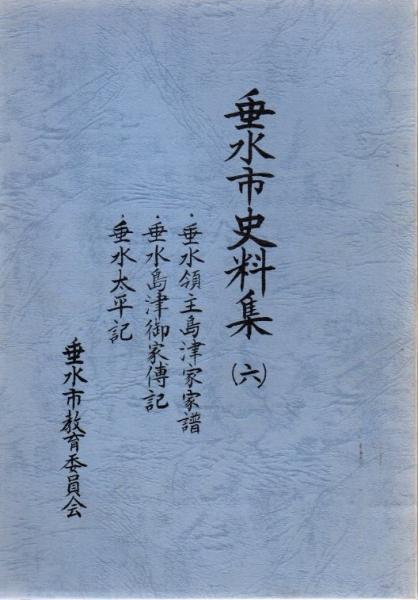 垂水市史料集(六)
・垂水領主島津家家譜
・垂水島津御家傳記
・垂水太平記
垂水市教育委員会